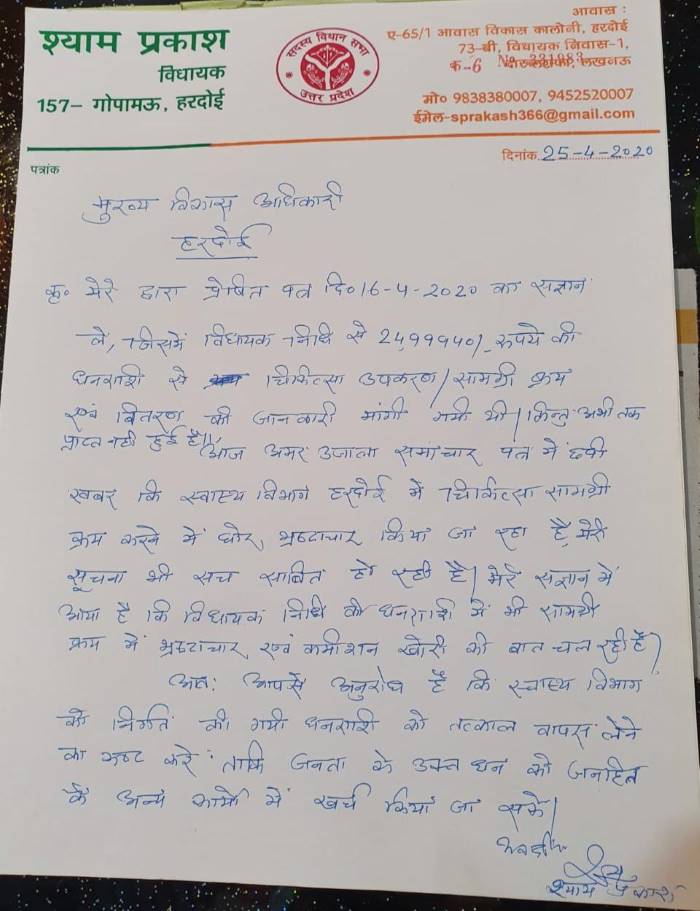 श्याम प्रकाश
विधायक
157– गोपामऊ, हरदोई
सदस्य विधान सभा
उत्तर प्रदेश
आवास :
ए-65/1 आवास विकास कालोनी, हरदोई
73-बी, विधायक निवास-1,
क-6 लखनऊ
मो० 9838380007, 9452520007
ईमेल-sprakash366@gmail.com
पत्रांक
दिनांक 25-4-2020
मुख्य विकास अधिकारी
हरदोई
कृ० मेरे द्वारा प्रेषित पत्र दि०16-4-2020 का संज्ञान
लें, जिसमें विधायक निधि से 2499940/- रुपये की
धनराशी से चिकित्सा उपकरण/सामग्री क्रय
एवं वितरण की जानकारी मांगी गयी थी| किन्तु अभी तक
प्राप्त नही हुई है।
आज अमर उजाला समाचार पत्र में छपी
खबर कि स्वास्थ्य विभाग हरदोई में चिकित्सा सामग्री
क्रय करने में घोर भ्रष्टाचार किया जा रहा है, मेरी
सूचना भी सच साबित हो रही है| मेरे संज्ञान में
आया है कि विधायक निधि की धनराशी में भी सामग्री
क्रय में भ्रष्टाचार एवं कमीशन खोरी की बात चल रही है|
अतः आपसे अनुरोध है कि स्वास्थ्य विभाग
को निर्गत की गयी धनराशी को तत्काल वापस लेने
का कष्ट करें ताकि जनता के उक्त धन को जनहित
के अन्य कार्यो में खर्च किया जा सके|
भवदीय
श्याम प्रकाश